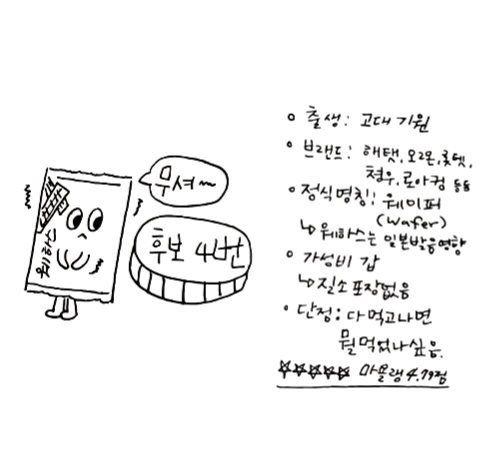 웨하스
무셔~
후보 4번
○ 출생: 고대 기원
○ 브랜드: 해탯, 오2온, 롯뎃,
청우, 로아커 등등
○ 정식명칭: 웨이퍼
(Wafer)
↳ 웨하스는 일본발음영향
○ 가성비 갑
↳ 질소포장없음
○ 단점: 다먹고나면
뭘먹었나싶음.
☆☆☆☆☆ 마몰랭 4.79점